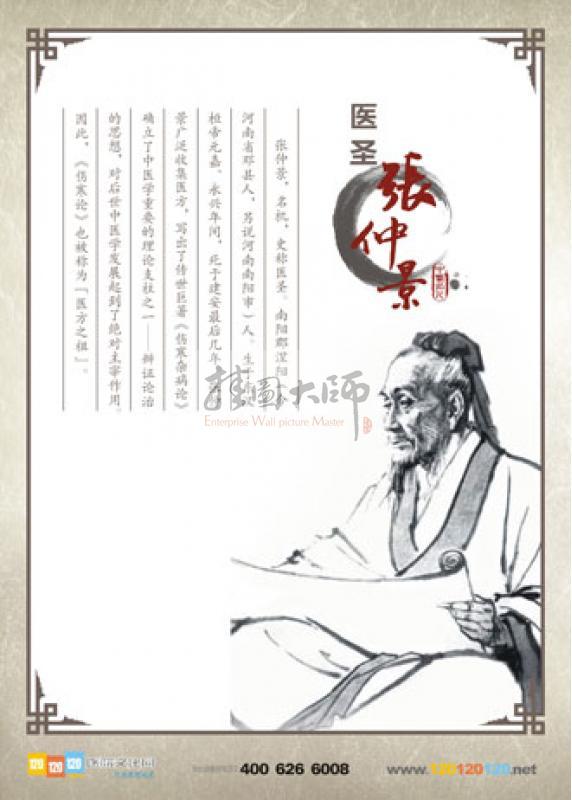 医圣
張仲景
张仲景，名机，史称医圣。南阳郡涅阳（今
河南省邓县人，另说河南南阳市）人。生于东汉
桓帝元嘉、永兴年间，死于建安最后几年
景广泛收集医方，写出了传世巨著《伤寒杂病论》
确立了中医学重要的理论支柱之一——辩证论治
的思想，对后世中医学发展起到了绝对主宰作用。
因此，《伤寒论》也被称为『医方之祖』。
挂圖大師
Enterprise Wall picture Master
120 120 120
400 626 6008
www.120120120.net